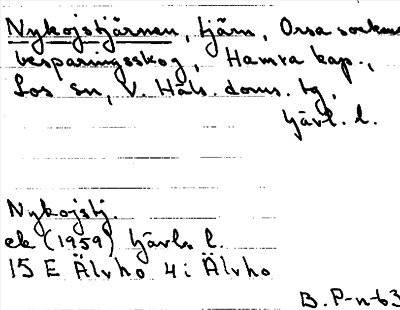 Nykojstjärnen, tjärn, Orsa sockens
besparingsskog, Hamra kap.,
Los sn, V. Häls. doms. tg,
Gävl. l.
Nykojstj.
ek (1959) Gävls l.
15 E Älvho 4 i Älvho
B. P-n-63